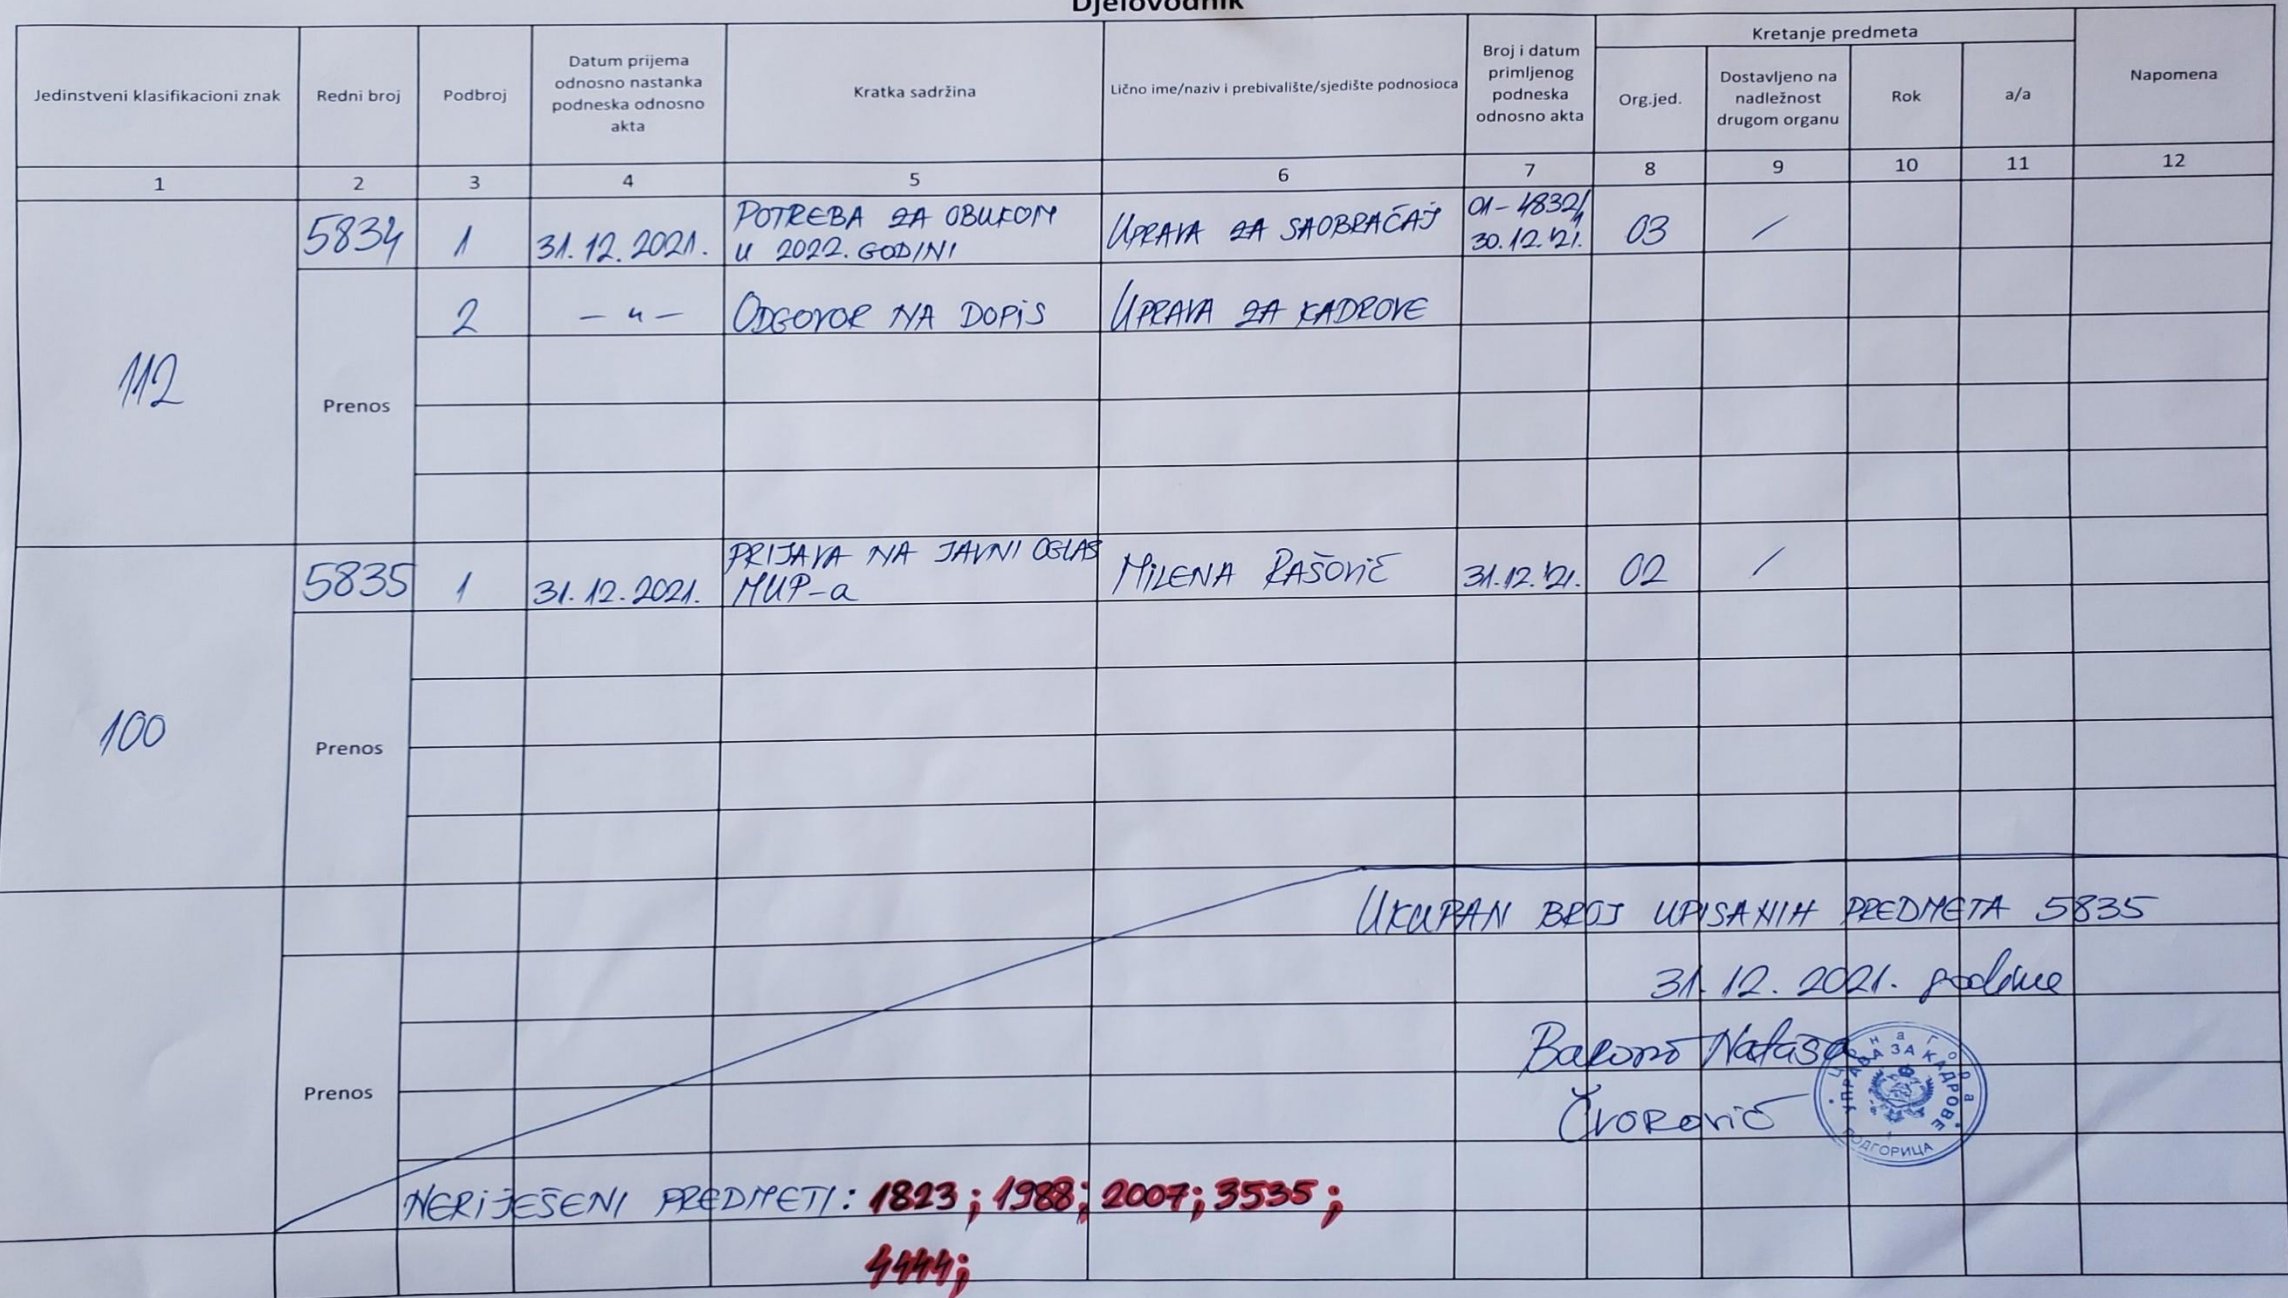 Djelovodnik
Jedinstveni klasifikacioni znak
Redni broj
Podbroj
Datum prijema
odnosno nastanka
podneska odnosno
akta
Kratka sadržina
Lično ime/naziv i prebivalište/sjedište podnosioca
Broj i datum
primljenog
podneska
odnosno akta
Kretanje predmeta
Org.jed.
Dostavljeno na
nadležnost
drugom organu
Rok
a/a
Napomena
1 2 3 4 5 6 7 8 9 10 11 12
112
5834
1
31.12.2021.
POTREBA ZA OBUKOM
U 2022. GODINI
UPRAVA ZA SAOBRAĆAJ
01-4832/1
30.12.'21.
03
/
2
- " -
ODGOVOR NA DOPIS
UPRAVA ZA KADROVE
Prenos
100
5835
1
31.12.2021.
PRIJAVA NA JAVNI OGLAS
MUP-a
MILENA RAŠOVIĆ
31.12.'21.
02
/
Prenos
UKUPAN BROJ UPISANIH PREDMETA 5835
31.12.2021. godine
Nataša
Čvorović
Црна Гора
УПРАВА ЗА КАДРОВЕ
ПОДГОРИЦА
Prenos
NERIJEŠENI PREDMETI: 1823; 1988; 2007; 3535;
4444;